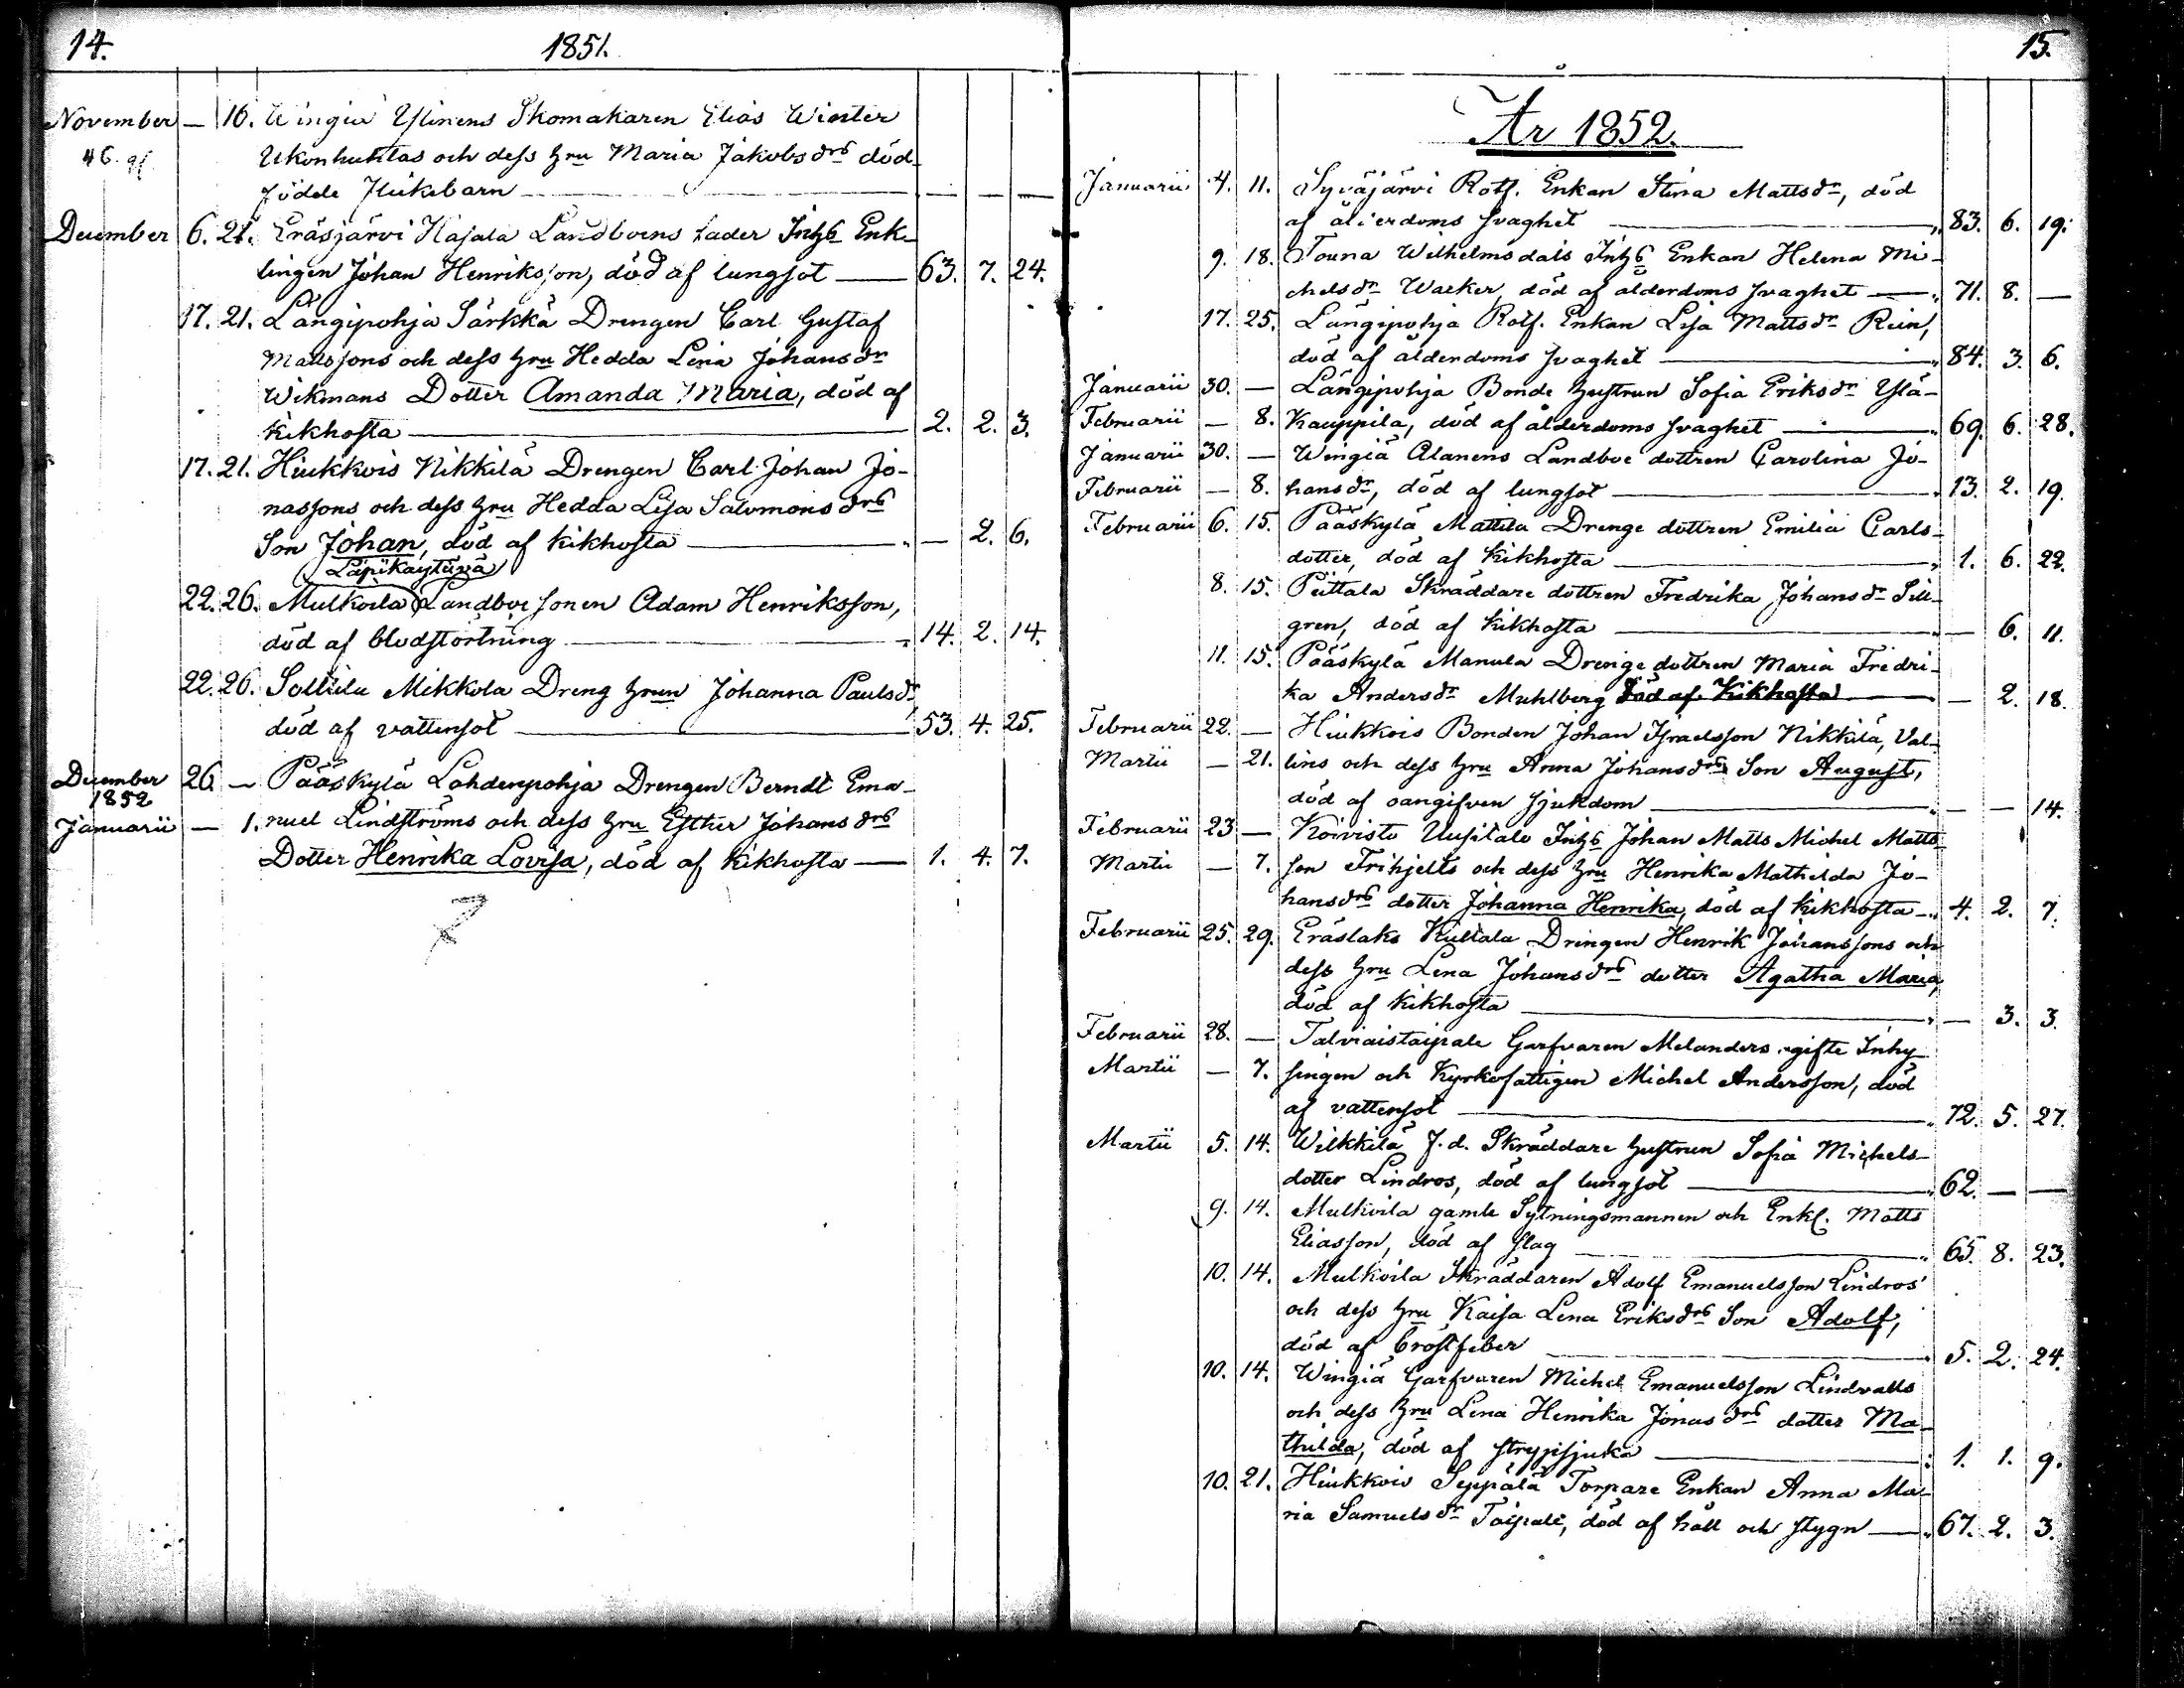 14.
1851.
November — 16. Wingiä Ylinens Skomakaren Elias Winter
46. Ukonhuhtas och dess hru Maria Jakobs drs död-
födde flickebarn — — — —
December 6. 21. Eräsjärvi Hajala Landboens fader Inhs Enk-
lingen Johan Henriksson, död af lungsot — 63. 7. 24.
17. 21. Längipohja Särkkä Drengen Carl Gustaf
Mattssons och dess hru Hedda Lena Johans dr
Wikmans Dotter Amanda Maria, död af
kikhosta — 2. 2. 3.
17. 21. Hiukkois Nikkilä Drengen Carl Johan Jo-
nassons och dess hru Hedda Lisa Salomons drs
Son Johan, död af kikhosta — — 2. 6.
Läpikäytävä
22. 26. Mulkoila Landboe sonen Adam Henriksson,
död af blodstörtning — 14. 2. 14.
22. 26. Sollila Mikkola Dreng hrun Johanna Pauls dr,
död af vattensot — 53. 4. 25.
December 26 — Pääskylä Lahdenpohja Drengen Berndt Ema-
1852
Januarii — 1. nuel Lindströms och dess hru Esther Johans drs
Dotter Henrika Lovisa, död af kikhosta — 1. 4. 7.
15.
År 1852.
Januarii 4. 11. Syväjärvi Rotf. Enkan Stina Matts dr, död
af ålderdoms svaghet — 83. 6. 19.
9. 18. Touna Wilhelmsdals Inhs Enkan Helena Mi-
chels dr Walker, död af ålderdoms svaghet — 71. 8. —
17. 25. Längipohja Rotf. Enkan Lisa Matts dr Rein,
död af ålderdoms svaghet — 84. 3. 6.
Januarii 30. — Längipohja Bonde hustrun Sofia Eriks dr Ylä-
Februarii — 8. Kauppila, död af ålderdoms svaghet — 69. 6. 28.
Januarii 30. — Wengiä Alanens Landboe dottren Carolina Jo-
Februarii — 8. hans dr, död af lungsot — 13. 2. 19.
Februarii 6. 15. Pääskylä Mattila Drenge dottren Emilia Carls-
dotter, död af kikhosta — 1. 6. 22.
8. 15. Puttala Skräddare dottren Fredrika Johans dr Sill-
gren, död af kikhosta — — 6. 11.
11. 15. Pääskylä Manula Drenge dottren Maria Fredri-
ka Anders dr Muhlberg död af Kikhosta — — 2. 18.
Februarii 22. — Hiukkois Bonden Johan Israelsson Nikkilä, Val-
Martii — 21. lins och dess hru Anna Johans drs Son August,
död af oangifven sjukdom — — — 14.
Februarii 23 — Koivisto Uusitalo Inhs Johan Matts Michel Matts-
Martii — 7. son Frihjelts och dess hru Henrika Mathilda Jo-
hans drs dotter Johanna Henrika, död af kikhosta — 4. 2. 7.
Februarii 25. 29. Eräslaks Kultala Drengen Henrik Johanssons och
dess hru Lena Johans drs dotter Agatha Maria,
död af kikhosta — — 3. 3.
Februarii 28. — Talviaistaipale Garfvaren Melanders gifte Inhy-
Martii — 7. singen och Kyrkofattigen Michel Andersson, död
af vattensot — 72. 5. 27.
Martii 5. 14. Wilkkilä f.d. Skräddare hustrun Sofia Michels-
dotter Lindros, död af lungsot — 62. — —
9. 14. Mulkoila gamle Sytningsmannen och Enkl. Matts
Eliasson, död af slag — 65. 8. 23.
10. 14. Mulkoila Skräddaren Adolf Emanuelsson Lindros
och dess hru Kaisa Lena Eriks drs Son Adolf,
död af bröstfeber — 5. 2. 24.
10. 14. Wingiä Garfvaren Michel Emanuelsson Lindvalls
och dess hru Lena Henrika Jonas drs dotter Ma-
thilda, död af strypsjuka — 1. 1. 9.
10. 21. Hiukkois Seppälä Torpare Enkan Anna Ma-
ria Samuels dr Taipale, död af håll och stygn — 67. 2. 3.